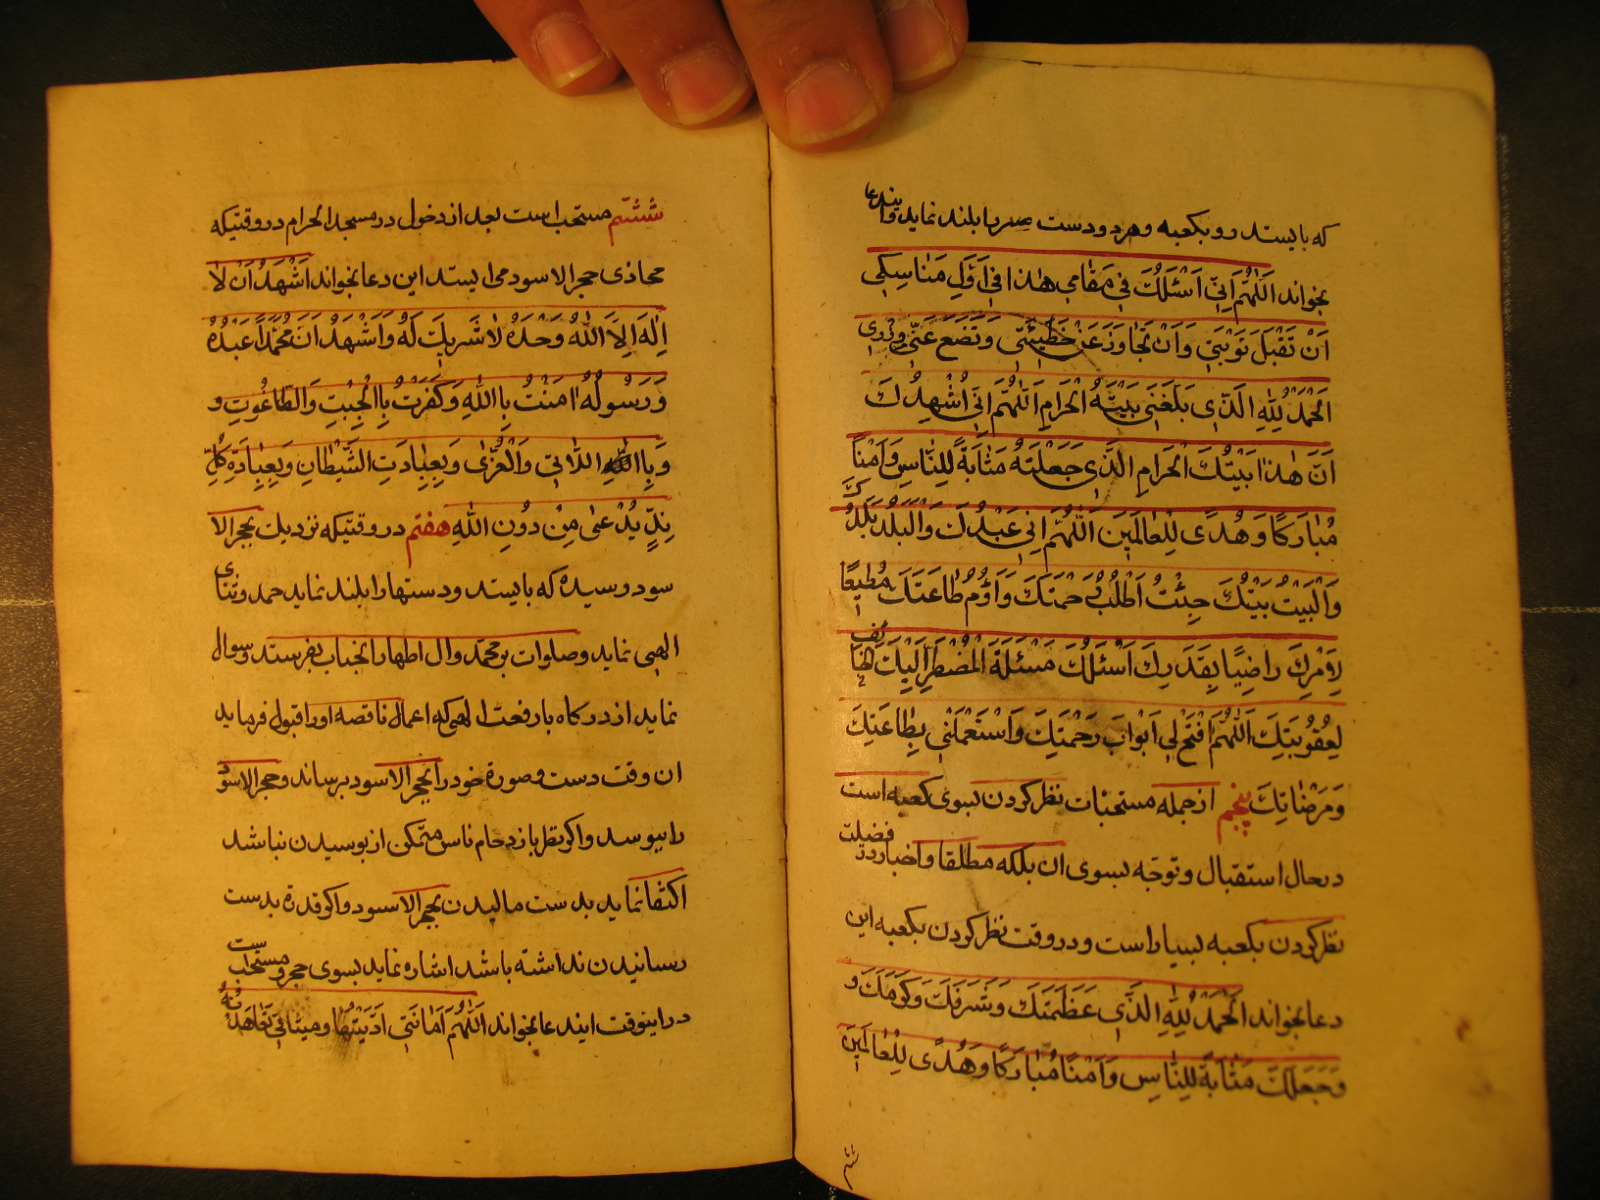 که بایستد رو بکعبه و هر دو دست صررا بلند نماید و ایندعا
بخواند اَللّٰهُمَّ اِنّی اَسْئَلُكَ فی مَقامی هٰذا فی اَوَّلِ مَناسِکی
اَنْ تَقْبَلَ تَوْبَتی وَاَنْ تَجاوَزَ عَنْ خَطیئَتی وَتَضَعَ عَنّی وِزْری
اَلْحَمْدُ لِلّٰهِ الَّذی بَلَغَنی بَیْتَهُ الْحَرامِ اَللّٰهُمَّ اِنّی اُشْهِدُكَ
اَنَّ هٰذا بَیْتُكَ الْحَرامِ الَّذی جَعَلْتَهُ مَثابَةً لِلنّاسِ وَاَمْناً
مُبارَکًا وَهُدًی لِلْعالَمینَ اَللّٰهُمَّ اِنّی عَبْدُكَ وَالْبَلَدُ بَلَدُكَ
وَالْبَیْتُ بَیْتُكَ جِئْتُ اَطْلُبُ رَحْمَتَكَ وَاَؤُمُّ طاعَتَكَ مُطیعًا
لِاَمْرِكَ راضِیًا بِقَدَرِكَ اَسْئَلُكَ مَسْئَلَةَ الْمُضْطَرِّ اِلَیْكَ الْخائِفِ
لِعُقُوبَتِكَ اَللّٰهُمَّ افْتَحْ لی اَبْوابَ رَحْمَتِكَ وَاسْتَعْمِلْنی بِطاعَتِكَ
وَمَرْضاتِكَ پنجم از جمله مستحبات نظر کردن بسوی کعبه است
در حال استقبال و توجه بسوی ان بلکه مطلقا و اخبار در فضیلت
نظر کردن بکعبه بسیار است و در وقت نظر کردن بکعبه این
دعا بخواند اَلْحَمْدُ لِلّٰهِ الَّذی عَظَّمَتَكَ وَشَرَّفَكَ وَکَرَّمَكَ وَ
وَجَعَلَكَ مَثابَةً لِلنّاسِ وَاَمْنًا مُبارَکًا وَهُدًی لِلْعالَمینَ
ششم
ششتم مستحب است بعد از دخول در مسجد الحرام در وقتیکه
محاذی حجر الاسود می ایستد این دعا بخواند اَشْهَدُ اَنْ لا
اِلٰهَ اِلاَّ اللّٰهُ وَحْدَهُ لا شَریكَ لَهُ وَاَشْهَدُ اَنَّ مُحَمَّداً عَبْدُهُ
وَرَسُولُهُ اٰمَنْتُ بِاللّٰهِ وَکَفَرْتُ بِالْجِبْتِ وَالطّاغُوتِ و
وَبِاللّاتی وَالْعُزّٰی وَبِعِبادَتِ الشَّیْطانِ وَبِعِبادَةِ کُلِّ
نِدٍّ یُدْعیٰ مِنْ دُونِ اللّٰهِ هفتم در وقتیکه نزدیك بحجر الا
سود رسیده که بایستد و دستها را بلند نماید حمد و ثنای
الهی نماید و صلوات بر محمد و ال اطهار انجناب بفرستد و سوال
نماید از درکاه با رفعت الهی که اعمال ناقصه او را قبول فرماید
ان وقت دست و صورة خود را بحجر الاسود برساند و حجر الاسود
را ببوسد و اکر نظر بازدحام ناس متمکن از بوسیدن نباشد
اکتفا نماید بدست مالیدن بحجر الاسود و اکر قدرة بدست
رسانیدن نداشته باشد اشاره نماید بسوی حجر و مستحب است
در اینوقت ایندعا بخواند اَللّٰهُمَّ اَمانَتی اَدَّیْتُها و میثاقی تَعاهَدْتُهُ